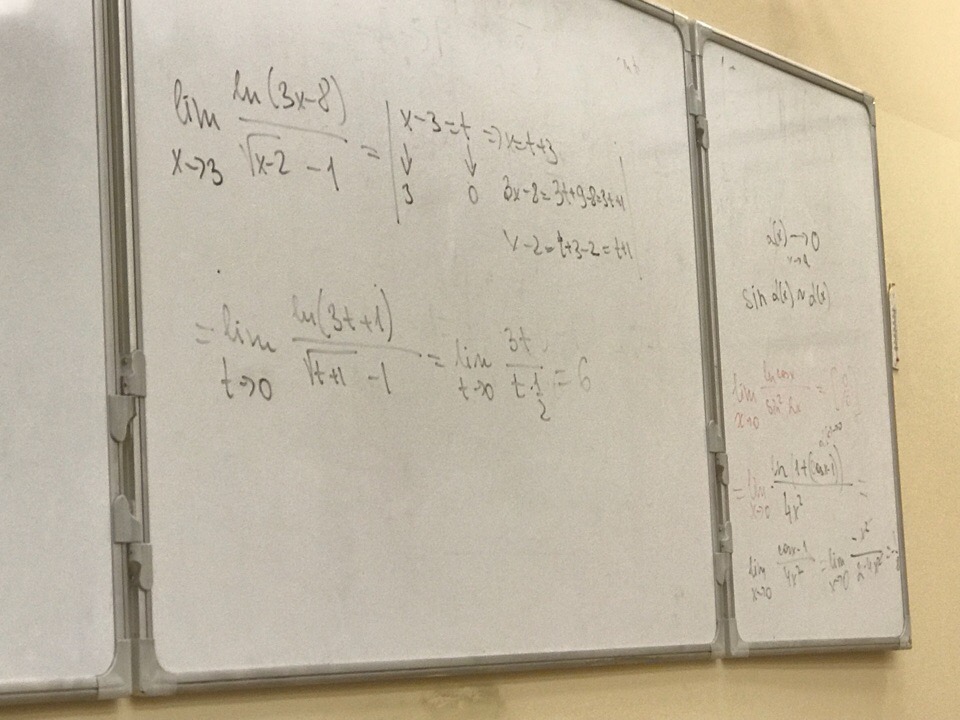 lim ln(3x-8) / √x-2 - 1 = | x-3=t => x=t+3
x→3 ↓ ↓
3 0 3x-8=3t+9-8=3t+1
x-2=t+3-2=t+1 |
= lim t→0 ln(3t+1) / √t+1 - 1 = lim t→0 3t / t·1/2 = 6
α(x)→0
sin α(x) ~ α(x)
lim x→0
= lim x→0 ln(1+(cosx-1)) / 4x² =
lim x→0 cosx-1 / 4x² = lim x→0